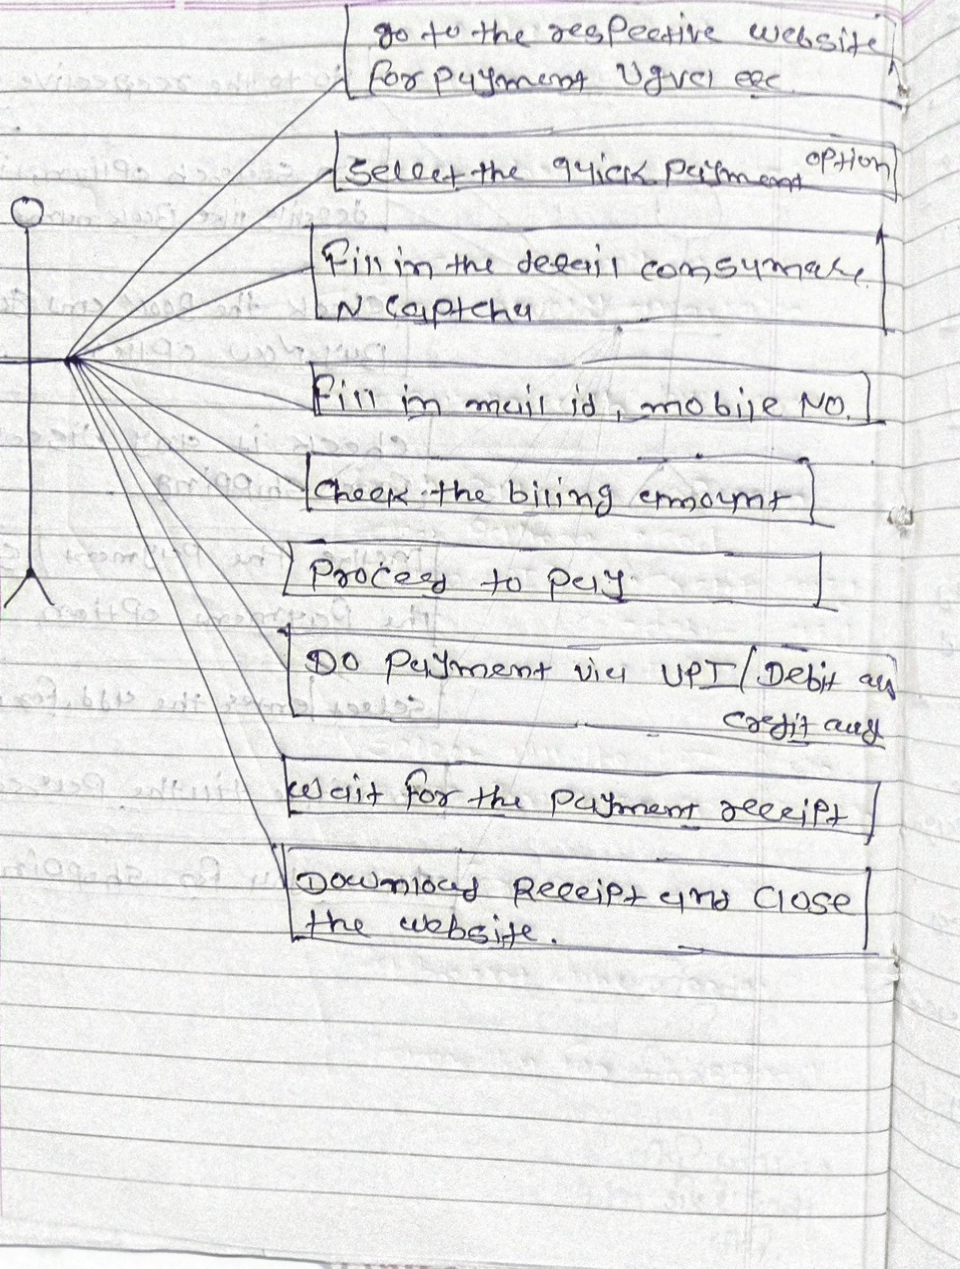 go to the respective website
for payment Ugvcl etc.
Select the quick payment option
Fill in the detail
N Captcha
Fill in mail id, mobile NO.
Check the biling amount
Proceed to pay
DO payment via UPI/Debit
credit
Wait for the payment receipt
Download Receipt and Close
the website.